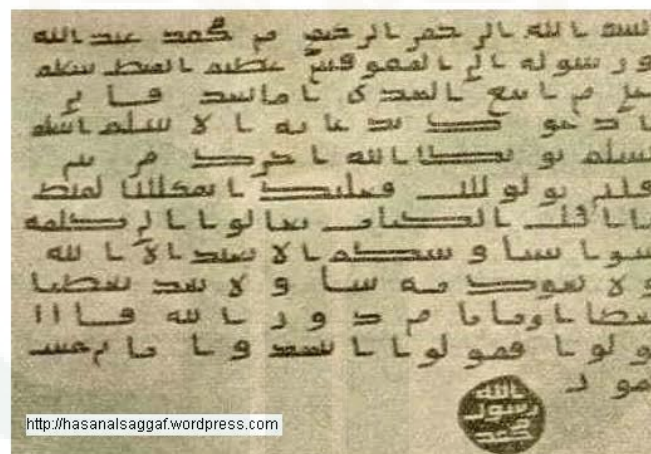 بسم الله الرحمن الرحيم من محمد عبد الله
ورسوله الى المقوقس عظيم القبط سلام
على من اتبع الهدى اما بعد فاني
ادعوك بدعاية الاسلام اسلم
تسلم يوتك الله اجرك مرتين
فان توليت فعليك اثم القبط
يا اهل الكتاب تعالوا الى كلمة
سوا بيننا وبينكم الا نعبد الا الله
ولا نشرك به شيا ولا يتخذ بعضنا
بعضا اربابا من دون الله فان
تولوا فقولوا اشهدوا بانا مسلمون
الله
رسول
محمد
http://hasanalsaggaf.wordpress.com